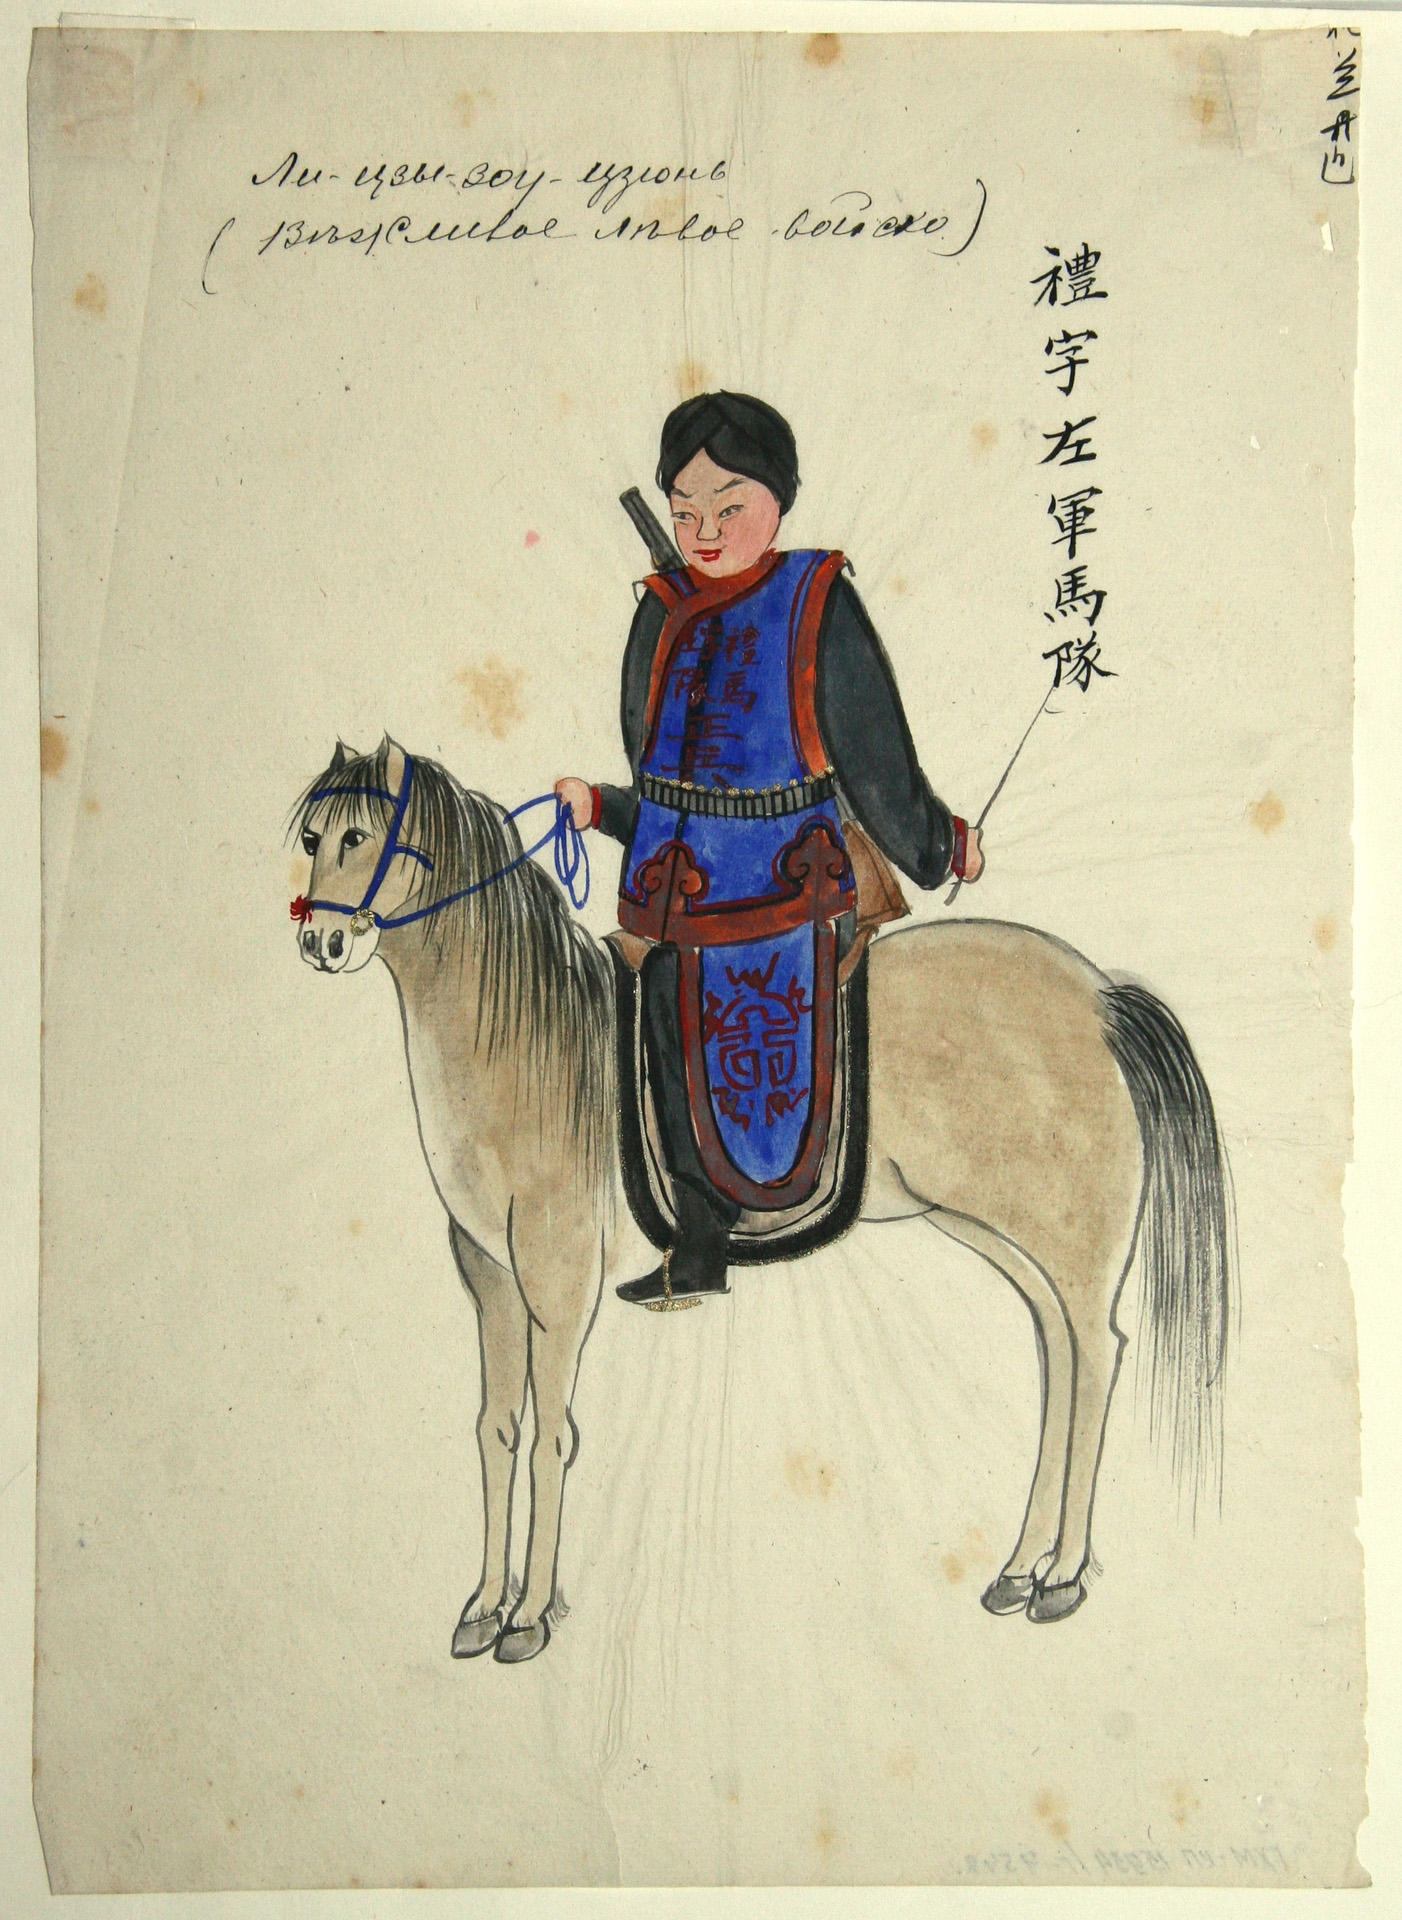 Ли-цзы-зоу-цзюнь
(Вѣжливое лѣвое войско)
禮字左軍馬隊
禮字
馬隊
正兵